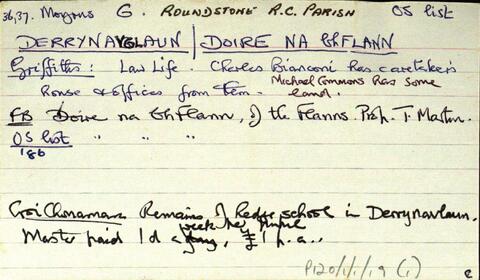 36,37. Moyrus G. ROUNDSTONE R.C. PARISH OS list
DERRYNAVGLAUN | DOIRE NA BHFLANN
Griffiths: Law Life. Charles Bianconi has caretaker's
house & offices from them. Michael Commons has some
land.
FB Doire na bhFlann, of the Flanns. Prop. T. Martin.
OS list " " "
186
Remains of hedge school in Derrynavlaun.
Master paid 1d a week per pupil, £1 p.a..
P120/1/1/19 (1)